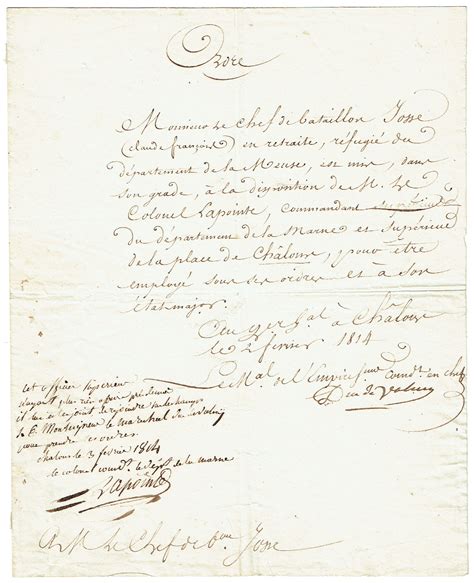 Ordre
Monsieur Le Chef de bataillon Josse
(claude françois) en retraite, réfugié du
département de la Meuse, est mis, dans
son grade, à la disposition de M. Le
Colonel Lapointe, commandant
du département de la Marne et Supérieur
de la place de Châlons, pour être
employé sous ses ordres et à son
état-major.
Au qer gal à Châlons
le 2 février 1814
Le Mal de l'Empire Commdt en chef
Duc de Valmy
cet officier supérieur
n'ayant plus rien à faire près de moi
il lui est enjoint de rejoindre
S. E. Monseigneur le maréchal de Valmy
pour prendre ses ordres.
chalons le 3 fevrier 1814
le colonel commdt le dépt de la marne
Lapointe
A Mr Le Chef de bon Josse